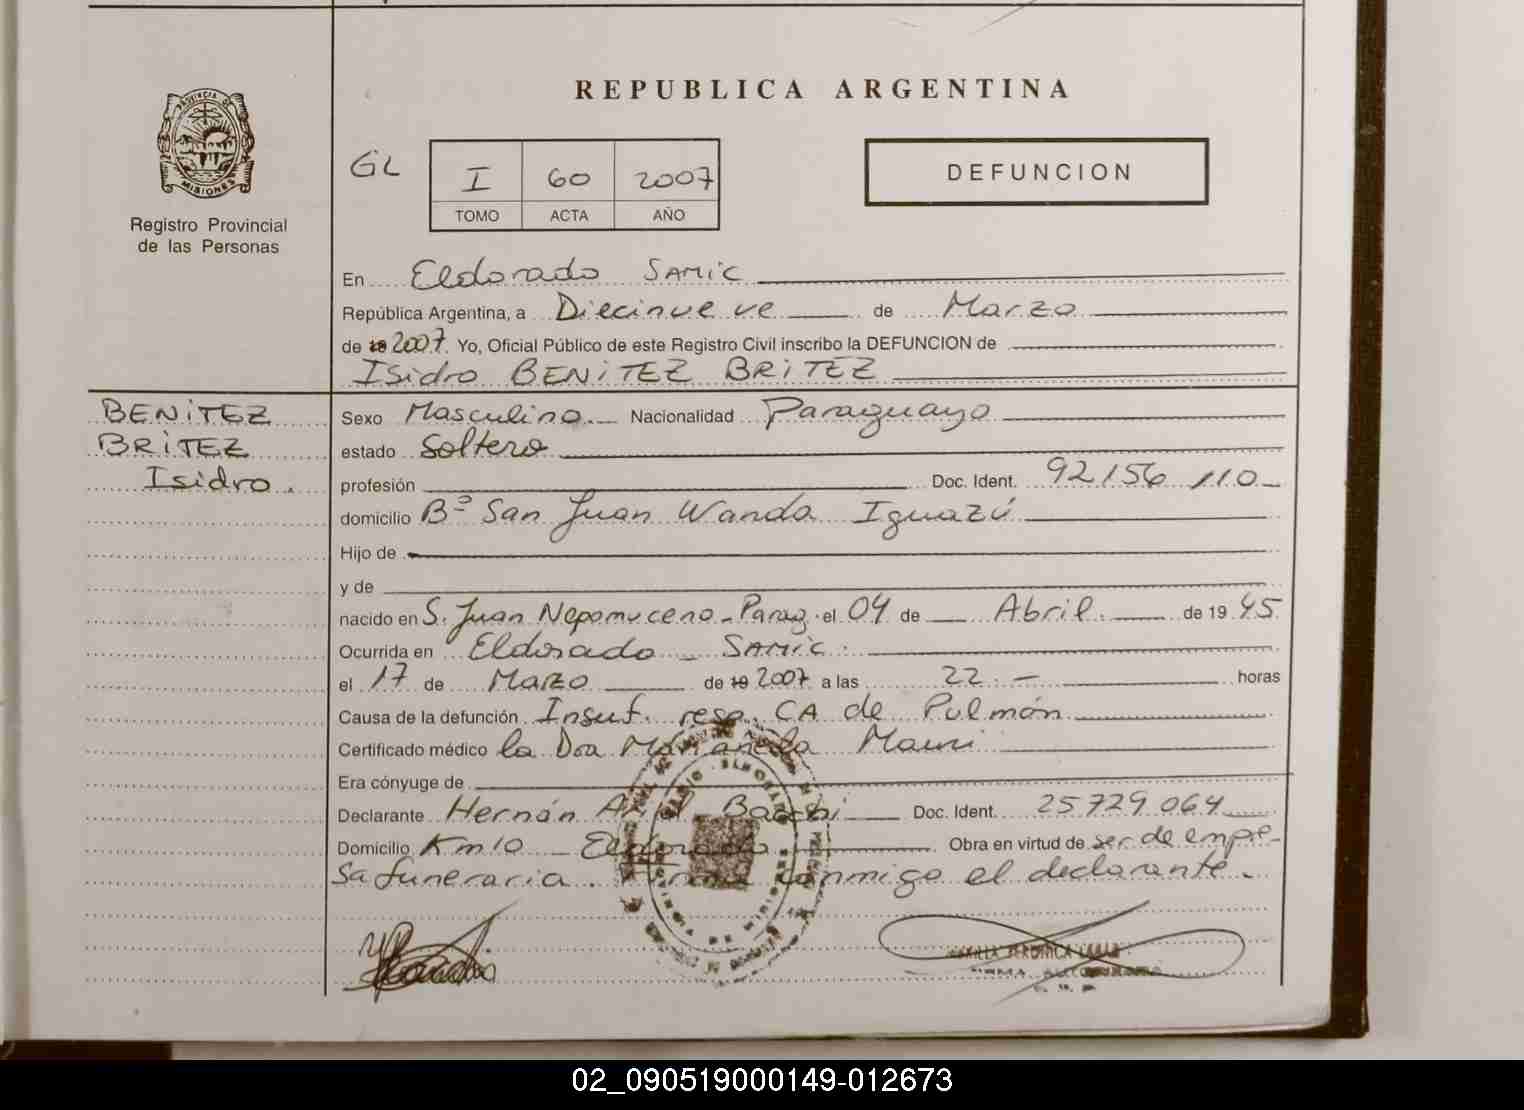 REPUBLICA ARGENTINA
PROVINCIA DE
MISIONES
Registro Provincial
de las Personas
GL
I 60 2007
TOMO ACTA AÑO
DEFUNCION
En Eldorado SAMIC
República Argentina, a Diecinueve de Marzo
de 19 2007. Yo, Oficial Público de este Registro Civil inscribo la DEFUNCION de
Isidro BENITEZ BRITEZ
BENITEZ
BRITEZ
Isidro.
Sexo Masculino Nacionalidad Paraguayo
estado Soltero
profesión Doc. Ident. 92156 110
domicilio Bº San Juan Wanda Iguazú
Hijo de
y de
nacido en S. Juan Nepomuceno - Parag. el 04 de Abril. de 19 45
Ocurrida en Eldorado - SAMIC.
el 17 de Marzo de 19 2007 a las 22.- horas
Causa de la defunción Insuf. resp. CA de Pulmón
Certificado médico la Dra
Era cónyuge de
Declarante Hernán Doc. Ident. 25729064
Domicilio Km 10 - Eldorado Obra en virtud de ser de empre-
sa funeraria. Firma conmigo el declarante.
02_090519000149-012673